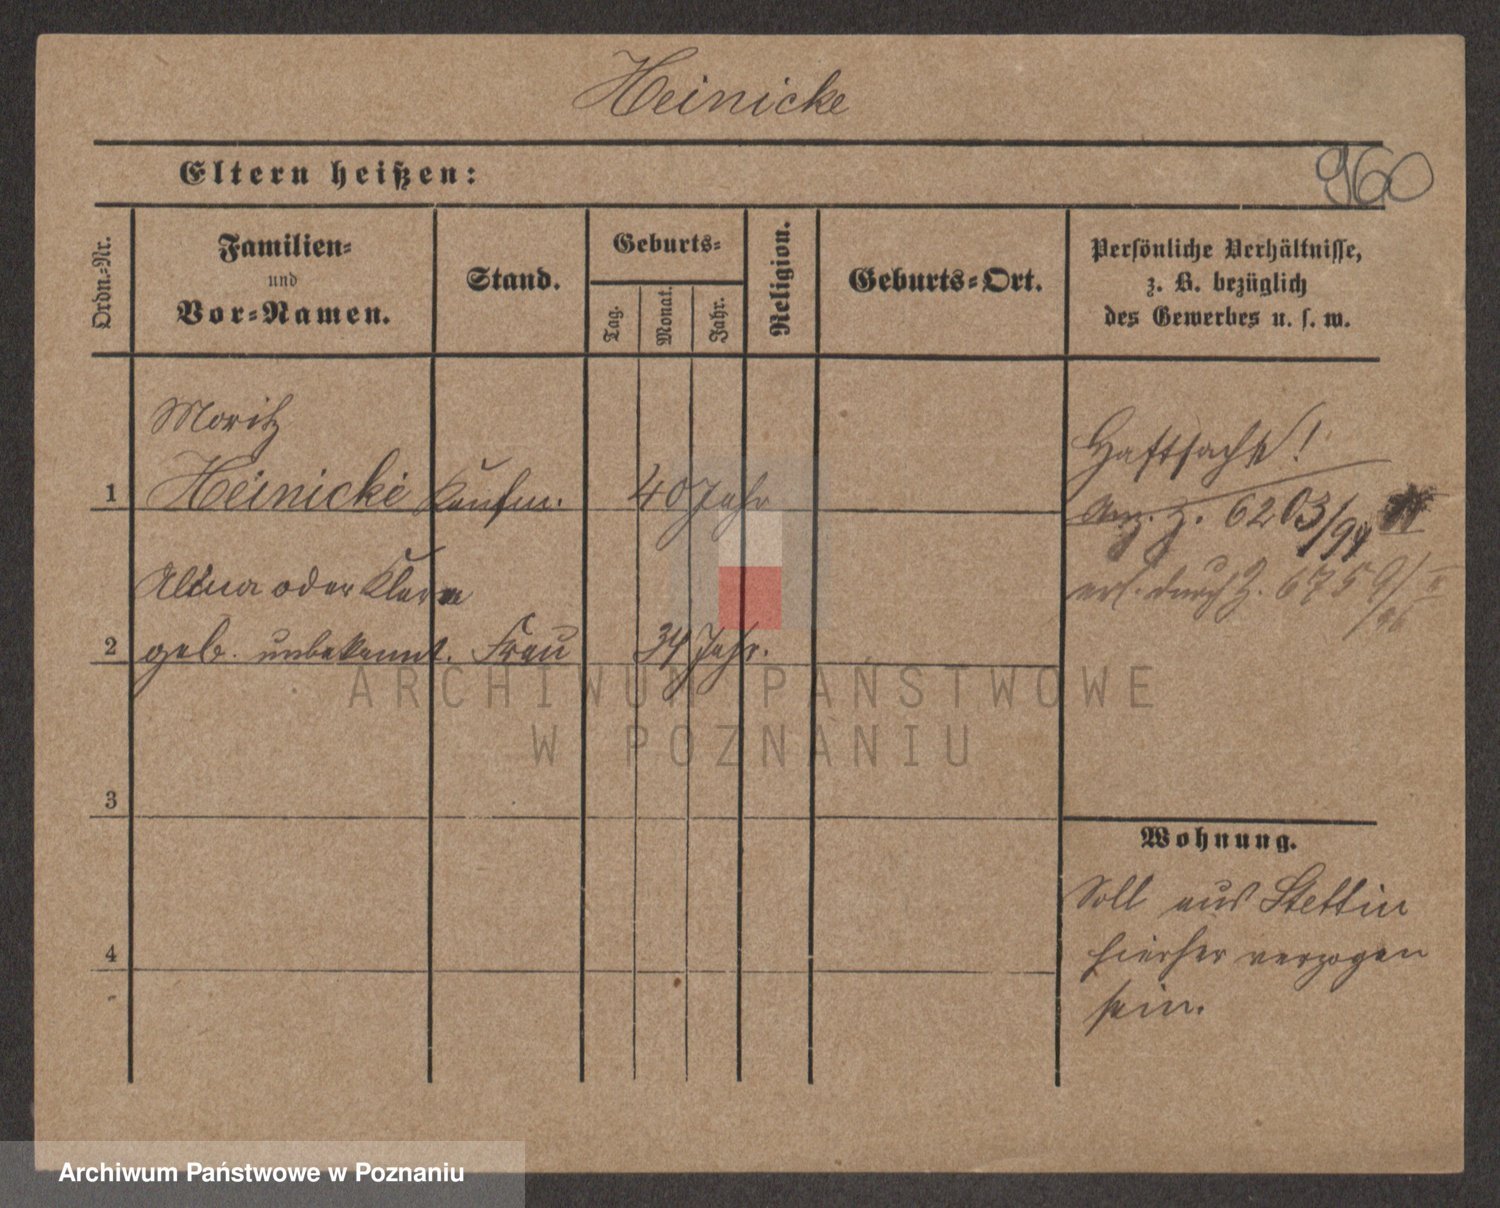 Heinicke
960
Eltern heißen:
Ordn.-Nr.
Familien-
und
Vor-Namen.
Stand.
Geburts-
Tag.
Monat.
Jahr.
Religion.
Geburts-Ort.
Persönliche Verhältnisse,
z. B. bezüglich
des Gewerbes u. s. w.
Moritz
1 Heinicke Kaufm. 40 Jahr
Haftsache!
Anz. Z. 6203/94
Alina oder Klara
erl. durch Z. 6759/
2 geb. unbekannt. Frau 34 Jahr.
ARCHIWUM PAŃSTWOWE
W POZNANIU
3
Wohnung.
Soll aus Stettin
4
hierher verzogen
sein.
Archiwum Państwowe w Poznaniu